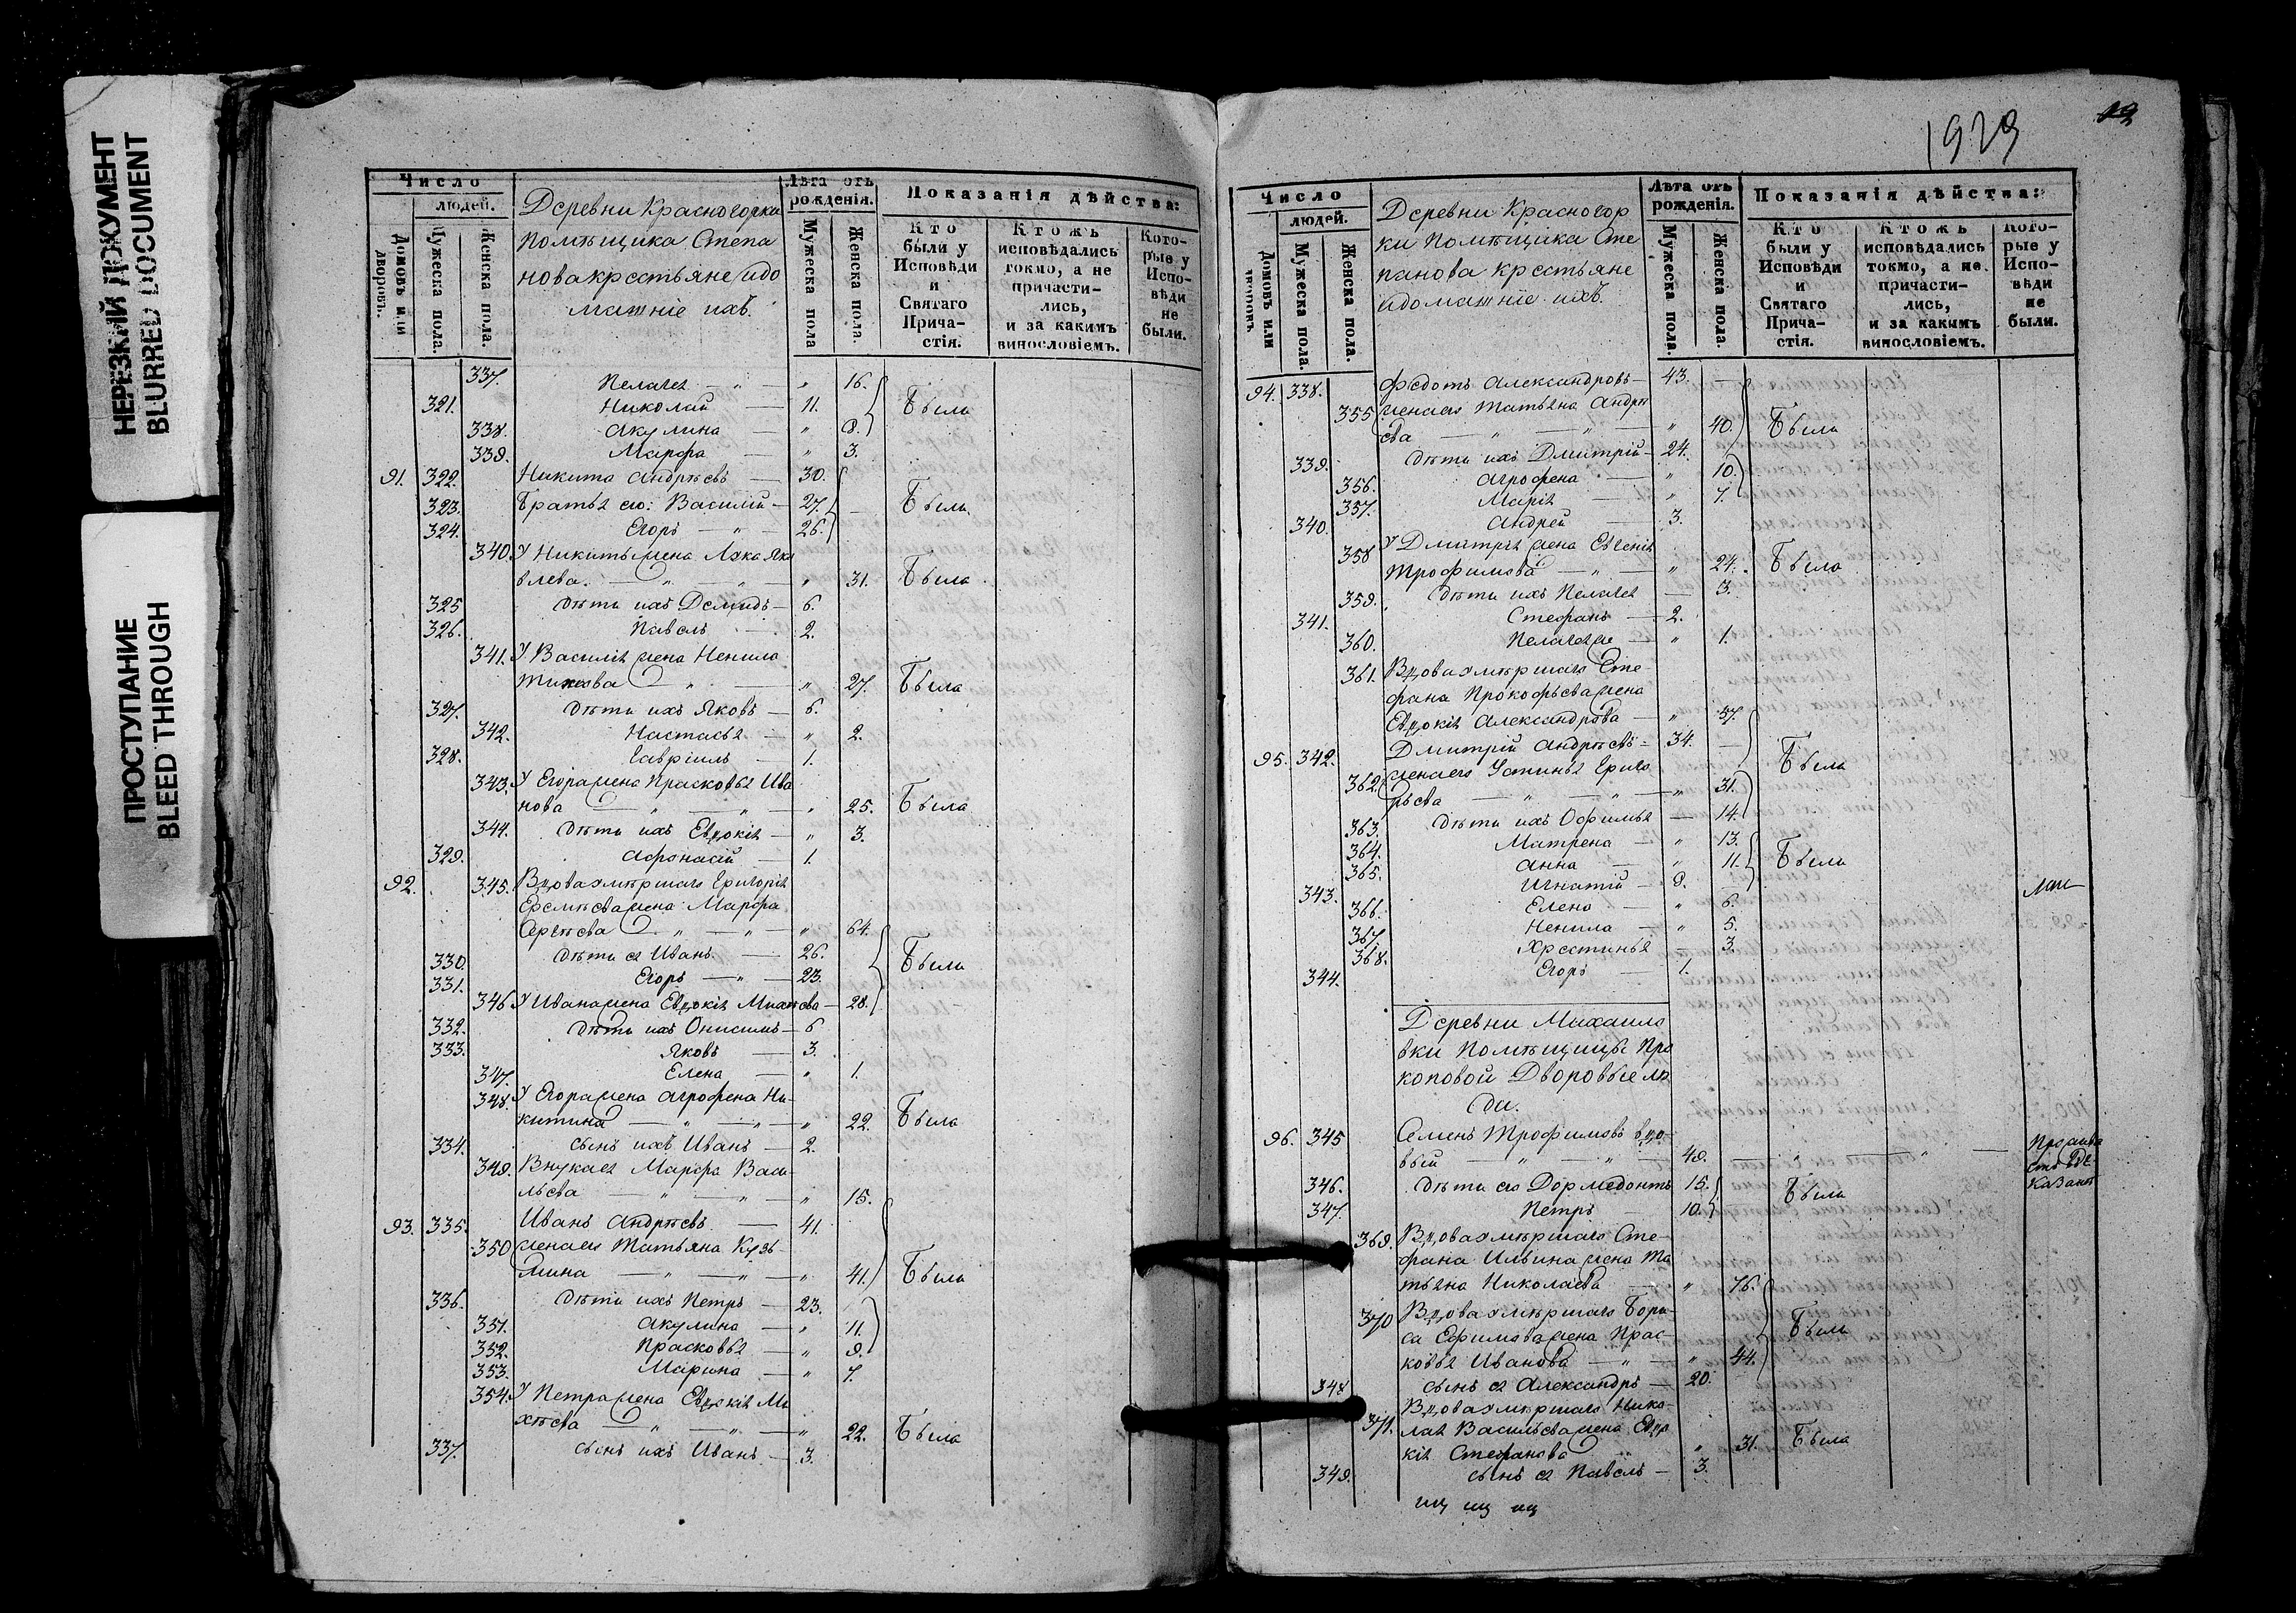 НЕРЕЗКИЙ ДОКУМЕНТ
BLURRED DOCUMENT
ПРОСТУПАНИЕ
BLEED THROUGH
Число
людей.
Домовъ или дворовъ.
Мужеска пола.
Женска пола.
Деревни Красногорки
Помѣщика Степа
нова крестьяне идо
машніе ихъ.
Лѣта отъ рожденія.
Мужеска пола
Женска пола.
Показанія дѣйства:
Кто были у Исповѣди и Святаго Прича-стія.
Ктожъ исповѣдались токмо, а не причасти-лись, и за какимъ винословіемъ.
Кото-рые у Испо-вѣди не были.
337. Пелагея — „ — „ 16.
321. Николай — 11. Были
338. Акулина — „ 8.
339. Марфа — „ 3.
91. 322. Никита Андрѣевъ — 30.
323. Братья его: Василій — 27. Были
324. Егоръ — „ — 26.
340. У Никиты жена Лука Яко
влева. — „ „ „ 31. Была
325 Дѣти ихъ Демидъ — 6.
326. Павелъ — 2.
341. У Василія жена Ненила
„ „ 27. Была
327. Дѣти ихъ Яковъ — 6.
342. Настасья — „ 2.
328. Гавріилъ — 1.
343. У Егора жена Прасковья Ива
нова — „ — „ — „ 25. Была
344. Дѣти ихъ Евдокія — „ 3.
329. Афонасій — 1.
92. 345. Вдова умѣршаго Григорія
Еремѣева жена Марфа
Сергѣева „ — „ — „ 64.
330. Дѣти ея Иванъ — 26. Были
331. Егоръ — „ — 23.
346 У Ивана жена Евдокія Михѣева — 28.
332. Дѣти ихъ Онисимъ — 6
333. Яковъ — 3.
347. Елена — „ 1.
348. У Егора жена Агрофена Ни-
китина — „ — „ — „ 22. Была
334. сынъ ихъ Иванъ — 2.
349. Внука ея Марфа Васи-
льева — „ — „ — „ 15.
93. 335. Иванъ Андрѣевъ — 41.
350 жена его Татьяна Кузь-
мина — „ — „ — „ 41. Были
336. Дѣти ихъ Петръ — 23.
351. Акулина — „ 11.
352. Прасковья — „ 9.
353. Марина — „ 7.
354. У Петра жена Евдокія Ми
хѣева — „ — „ — „ 22. Была
337. сынъ ихъ Иванъ — 3.
1929
Число
людей.
Домовъ или дворовъ
Мужеска пола.
Женска пола.
Деревни Красногор
ки Помѣщика Сте
панова крестьяне
идомашніе ихъ.
Лѣта отъ рожденія.
Мужеска пола.
Женска пола.
Показанія дѣйства:
Кто были у Исповѣди и Святаго Прича-стія.
Ктожъ исповѣдались токмо, а не причасти-лись, и за какимъ винословіемъ.
Кото-рые у Испо-вѣди не были.
94. 338. Федотъ Александровъ — 43. —
355 жена его Татьяна Андрѣ
ева — „ — „ — „ 40. Были
339. Дѣти ихъ Дмитрій — 24.
356. Агрофена — „ 10.
357. Марія — „ 7.
340. Андрей — 3.
358 У Дмитрія жена Евгенія
Трофимова — „ — „ 24. Была
359. Дѣти ихъ Пелагея — 3.
341. Стефанъ — 2.
360. Пелагея — „ 1.
361. Вдова умѣршаго Сте
фана Прокофьева жена
Евдокія Александрова — „ 57.
95. 342. Дмитрій Андрѣевъ — 34. — Были
362. жена его Устинья Григо
рьева — „ — „ — „ 31.
363. Дѣти ихъ Офимья — 14.
364. Матрена — „ 13.
365. Анна — „ 11. Были
343. Игнатій — 9. —
366. Елена — „ 6.
367. Ненила — „ 5.
368. Хрестинья — 3.
344. Егоръ — 1.
Деревни Михаило
вки Помѣщицы Про
коповой Дворовые лю
ди.
96. 345 Семенъ Трофимовъ вдо-
вый — „ — „ — 49. — „ — „ —
346. Дѣти его Дормедонтъ 15. Были
347. Петръ — 10.
369. Вдова умѣршаго Сте-
фана Ильина жена Та
тьяна Николаева — „ 76.
370 Вдова умѣршаго Бори-
са Ефимова жена Прас-
ковья Иванова — „ — „ 44. Были
348 сынъ ея Александръ — 20.
371. Вдова умѣршаго Нико-
лая Васильева жена Евдо
кія Стефанова „ 31. Была
349. сынъ ея Павелъ — 3.